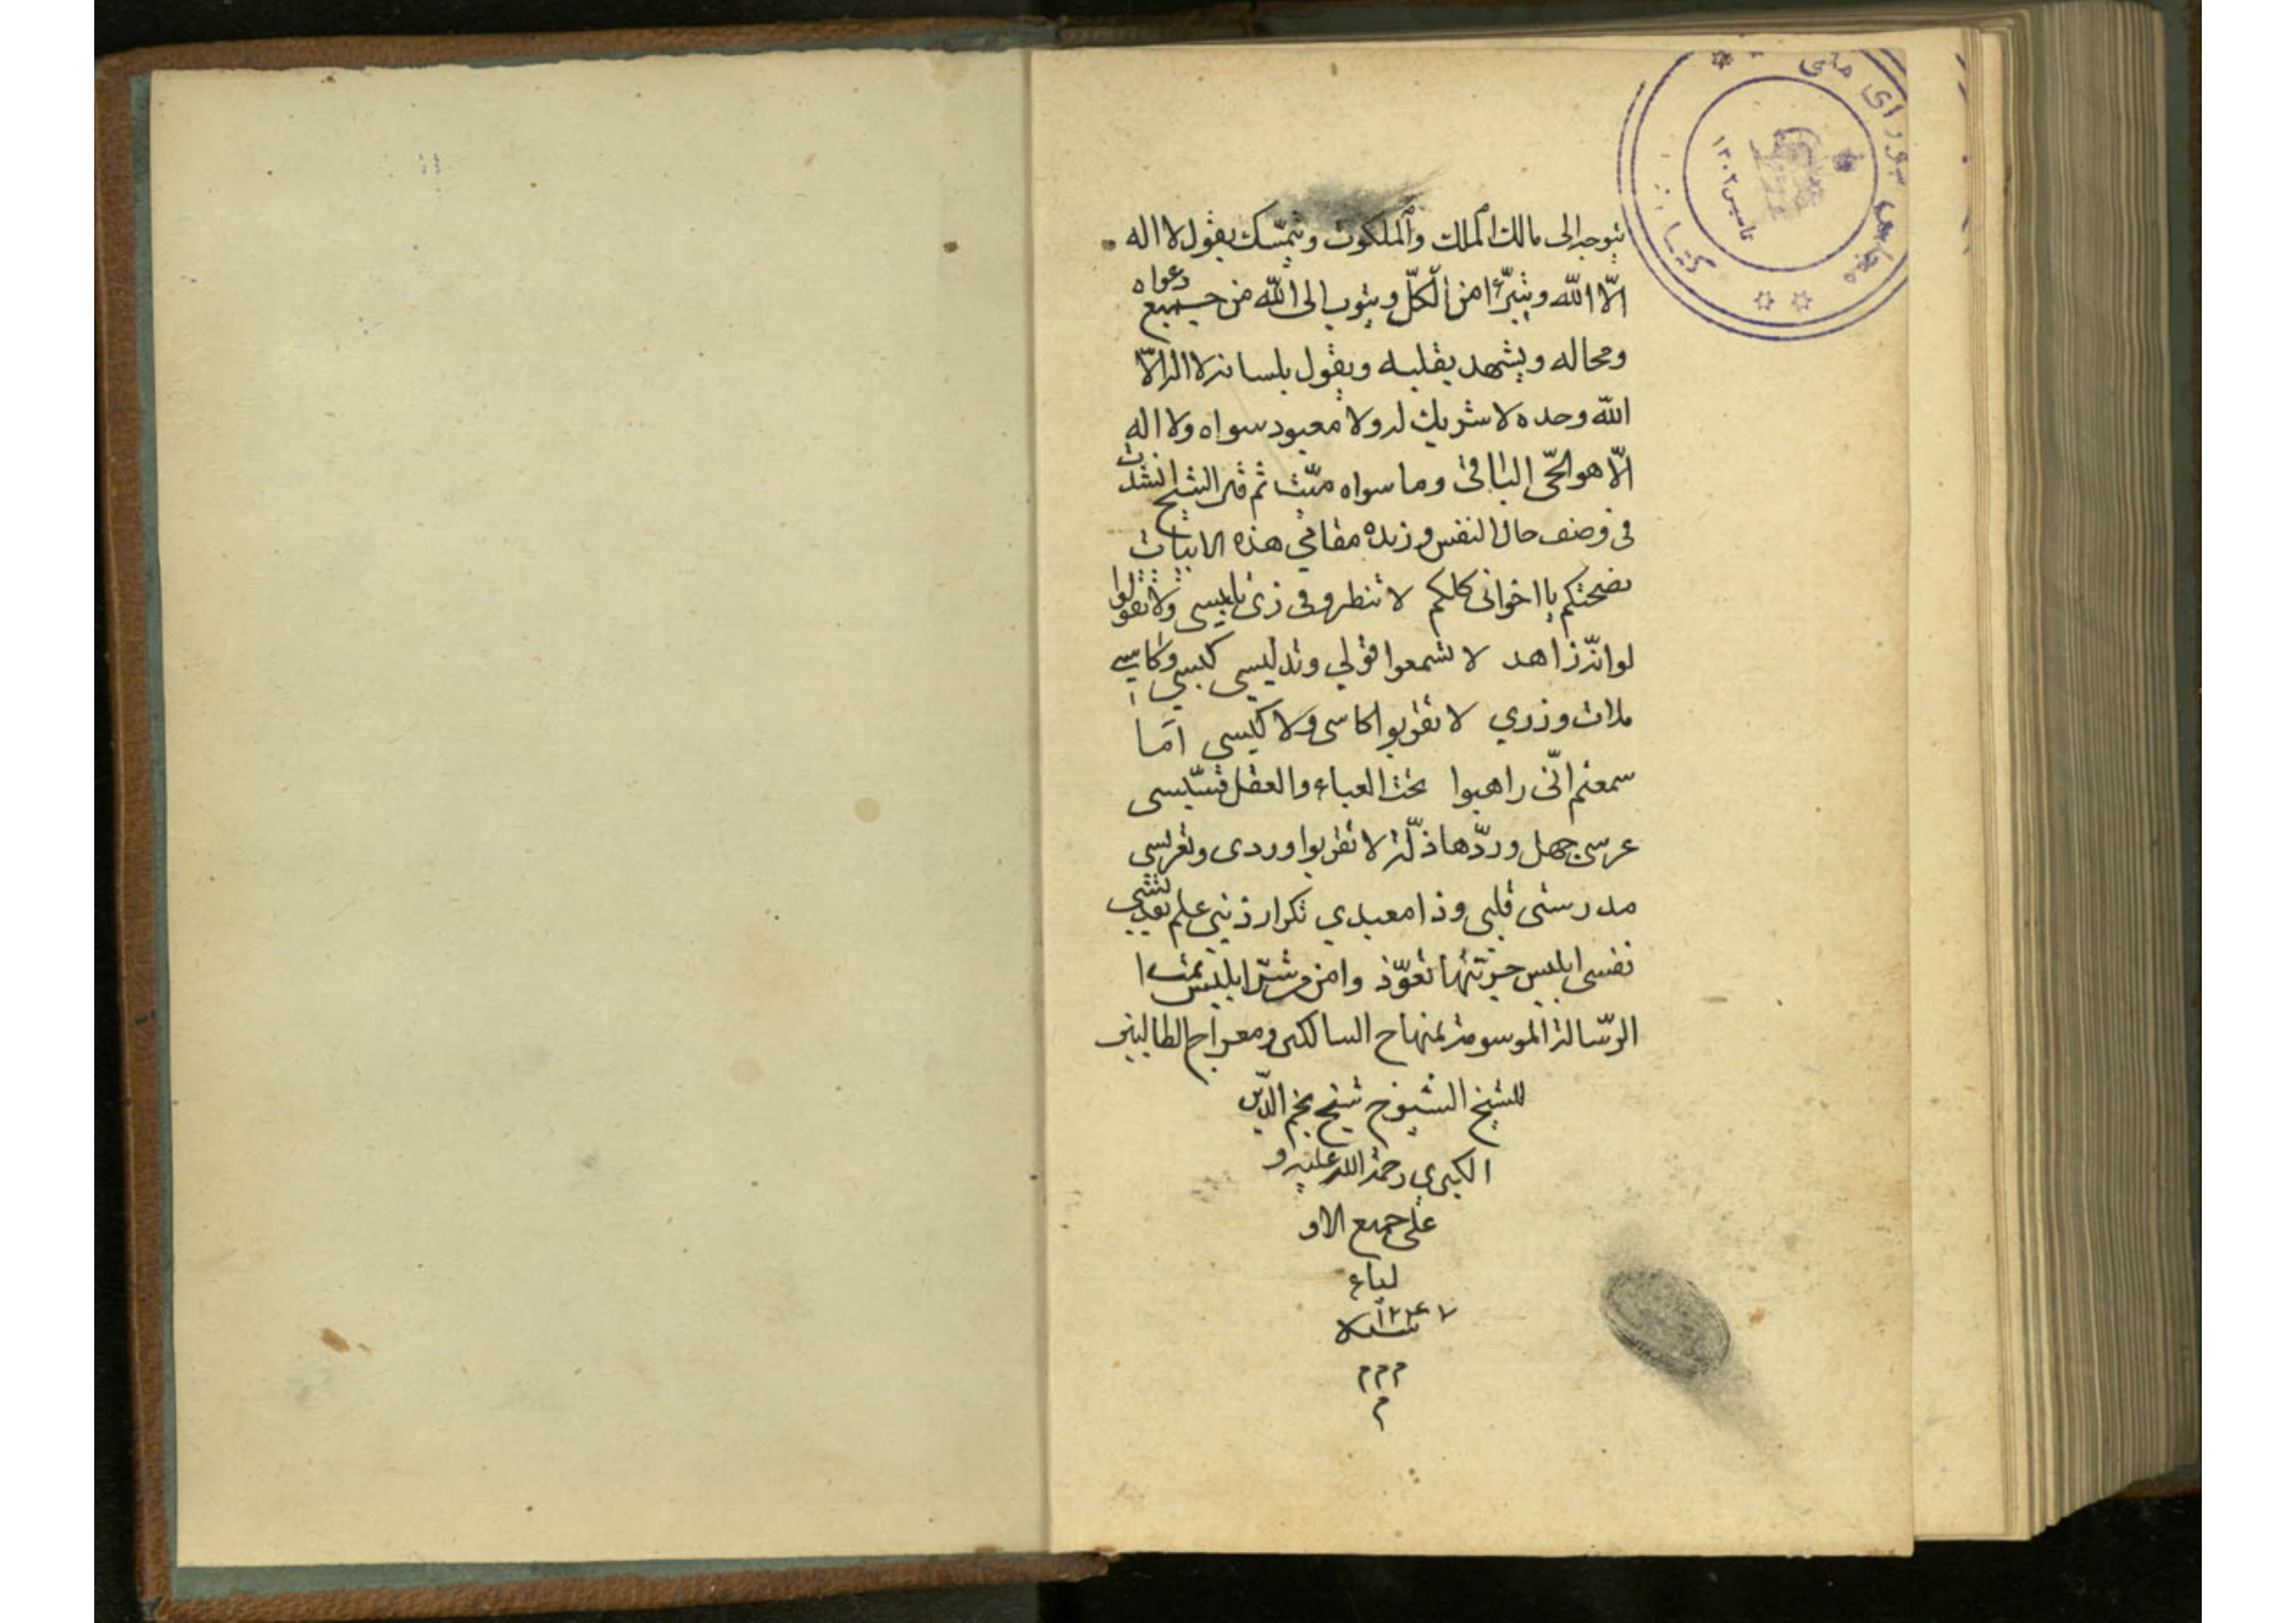 يتوجه الى مالك الملك والملكوت ويتمسّك بقول لا اله
الّا الله ويتبرّء من الكلّ ويتوب الى الله من جميع دعواه
ومحاله ويشهد بقلبه ويقول بلسانه لا اله الّا
الله وحده لا شريك له ولا معبود سواه ولا اله
الّا هو الحىّ الباقى وما سواه ميّت ثم قال الشيخ انشدت
فى وصف حال النفس و مقامى هذه الابيات
نصحتكم يا اخوانى كلكم لا تنظروا فى زى تلبيسى ولا تقولوا
لو انّه زاهد لا تسمعوا قولى وتدليسى كيسى وكاسى
ملات وزرى لا تقربوا كاسى ولا كيسى امّا
سمعتم انّى راهبوا تحت العباء والعقل قسّيسى
عرسى جهل وردّها ذلّة لا تقربوا وردى وتعريسى
مدرستى قلبى وذا معبدى تكرار ذنبى علم تدريسى
نفسى ابليس تعوّذوا من شرّ ابليس تمت
الرّسالة الموسومة بمنهاج السالكين ومعراج الطالبين
للشيخ الشيوخ شيخ نجم الدّين
الكبرى رحمة الله عليه و
على جميع الاو
لياء
سنة
م م م
م
تاسيس ١٣٠٢